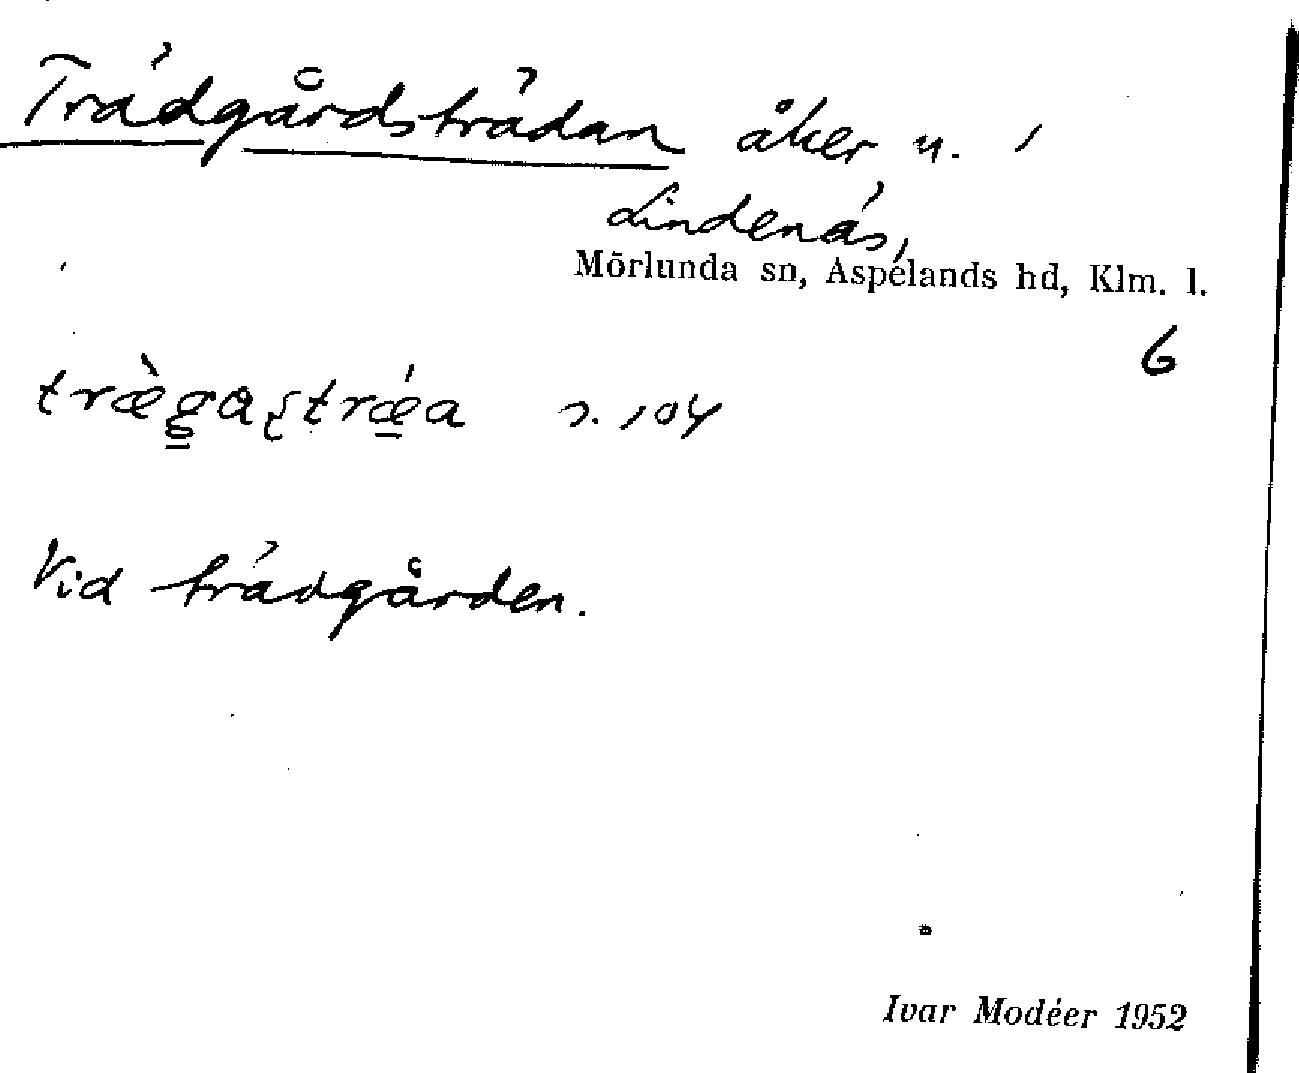 Trädgårdsträdan åker n. 1
Lindenäs,
Mörlunda sn, Aspelands hd, Klm. l.
6
træ̀gaʂtrǽa s. 104
Vid trädgården.
Ivar Modéer 1952